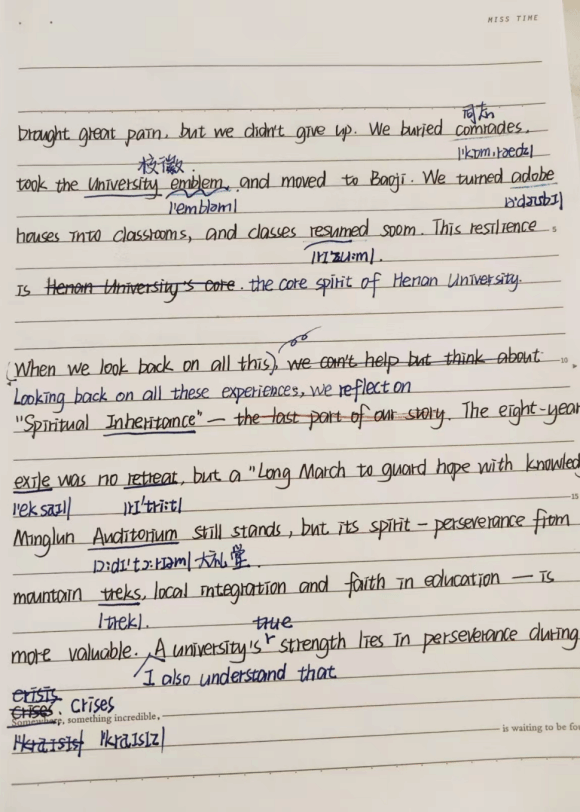 MISS TIME
同志
brought great pain, but we didn't give up. We buried comrades,
校徽
|'kɒm,rædz|
took the University emblem, and moved to Baoji. We turned adobe
|'embləm|
houses into classrooms, and classes resumed soom. This resilience
|rɪ'zu:m|.
is Henan University's core. the core spirit of Henan University.
(When we look back on all this), we can't help but think about
Looking back on all these experiences, we reflect on
"Spiritual Inheritance" — the last part of our story. The eight-year
exile was no retreat, but a "Long March to guard hope with knowled
|'eksaɪl| |rɪ'tri:t|
Minglun Auditorium still stands, but its spirit – perseverance from
大礼堂.
mountain treks, local integration and faith in education — is
|trek|.
true
more valuable. A university's strength lies in perseverance during
I also understand that
crisis
crises. crises
Somewhere, something incredible,
is waiting to be fo
|'kraɪsɪs| |'kraɪsɪz|